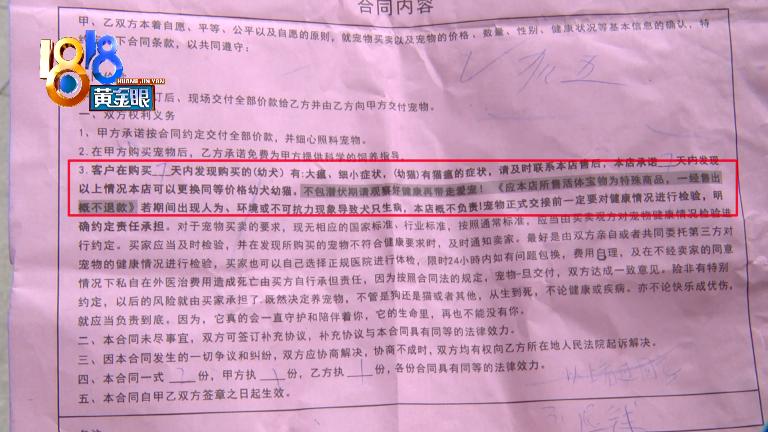 合同内容
甲、乙双方本着自愿、平等、公平以及自愿的原则，就宠物买卖以及宠物的价格、数量、性别、健康状况等基本信息的确认，特
下合同条款，以共同遵守：
1818
HUANG JIN YAN
黄金眼
订后、现场交付全部价款给乙方并由乙方向甲方交付宠物。
一、双方权利义务
1、甲方承诺按合同约定交付全部价款，并细心照料宠物。
2.在甲方购买宠物后，乙方承诺免费为甲方提供科学的饲养指导。
3.客户在购买7天内发现购买的(幼犬)有:犬瘟、细小症状，(幼猫)有猫瘟的症状，请及时联系本店售后，本店承诺7天内发现
以上情况本店可以更换同等价格幼犬幼猫。不包潜伏期请观察好健康再带走爱宠！《应本店所售活体宝物为特殊商品，一经售出
概不退款》若期间出现人为、环境或不可抗力现象导致犬只生病，本店概不负责!宠物正式交接前一定要对健康情况进行检验，明
确约定责任承担。对于宠物买卖的要求，现无相应的国家标准、行业标准，按照通常标准，应当由买卖双方对宠物健康情况检验进
行约定。买家应当及时检验，并在发现所购买的宠物不符合健康要求时，及时通知卖家。最好是由双方亲自或者共同委托第三方对
宠物的健康情况进行检验，买家也可以自己选择正规医院进行体检，限时24小时内如有问题包换，费用自理，及在不经卖家的同意
情况下私自在外医治费用造成死亡由买方自行承但责任，因为按照合同法的规定，宠物一旦交付，双方达成一致意见。除非有特别
约定，以后的风险就由买家承担了.既然决定养宠物，不管是狗还是猫或者其他，从生到死，不论健康或疾病。亦不论快乐或忧伤，
就应当负责到底。因为，它真的会一直守护和陪伴着你，它的生命里，再也不能没有你。
二、本合同未尽事宜，双方可签订补充协议，补充协议与本合同具有同等的法律效力。
三、因本合同发生的一切争议和纠纷，双方应协商解决，协商不成时，双方均有权向乙方所在地人民法院起诉解决。
四、本合同一式 2 份，甲方执 1 份，乙方执 1 份，各份合同具有同等的法律效力。
五、本合同自甲乙双方签章之日起生效。